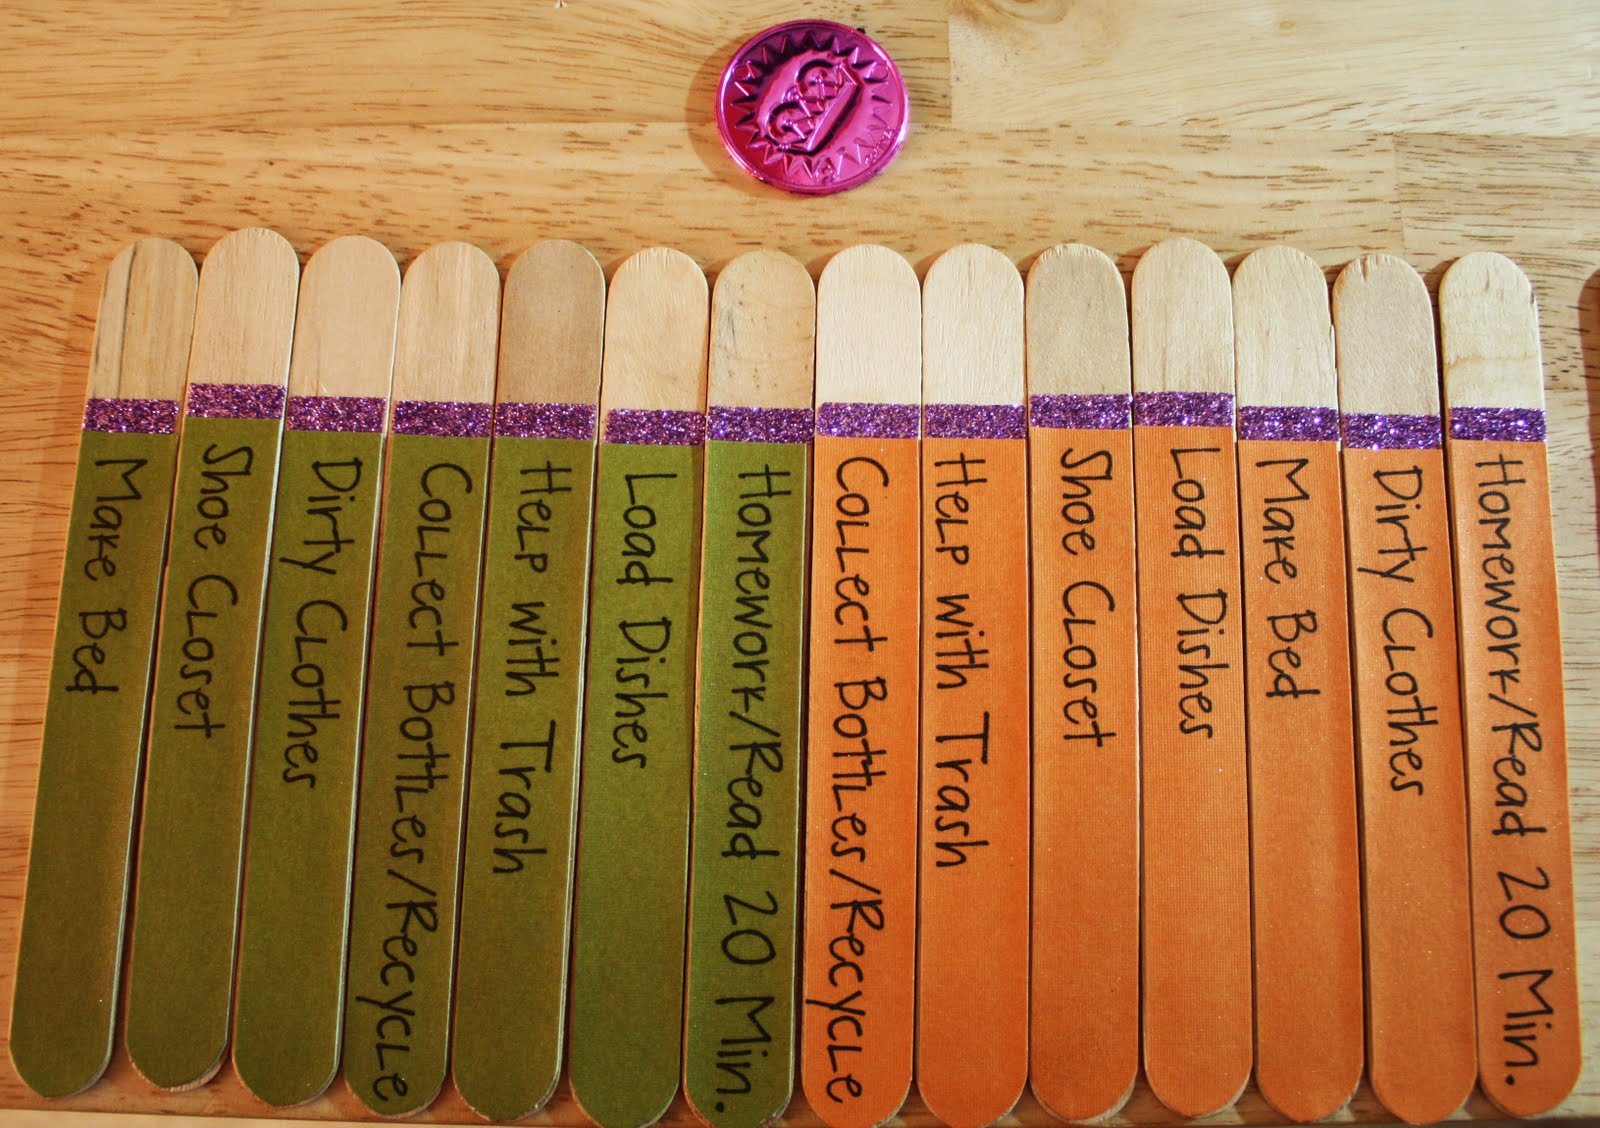 Make Bed
Shoe Closet
Dirty Clothes
Collect Bottles/Recycle
Help with Trash
Load Dishes
Homework/Read 20 Min.
Collect Bottles/Recycle
Help with Trash
Shoe Closet
Load Dishes
Make Bed
Dirty Clothes
Homework/Read 20 Min.